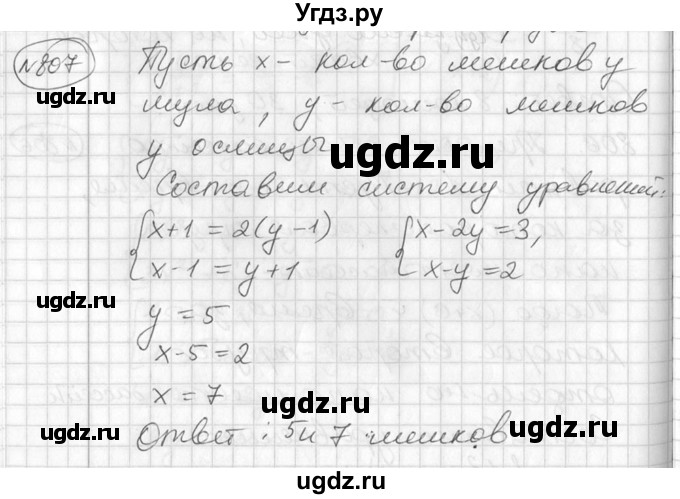 Угдз.ру
№807
Пусть x - кол-во мешков у
мула, y - кол-во мешков
у ослицы
ugdz.ru
ugdz.ru
Составим систему уравнений:
x+1 = 2(y-1)
x-1 = y+1
x-2y = 3,
x-y = 2
ugdz.ru
ugdz.ru
y = 5
x-5 = 2
x = 7
ugdz.ru
ugdz.ru
Ответ: 5 и 7 мешков
ugdz.ru
ugdz.ru